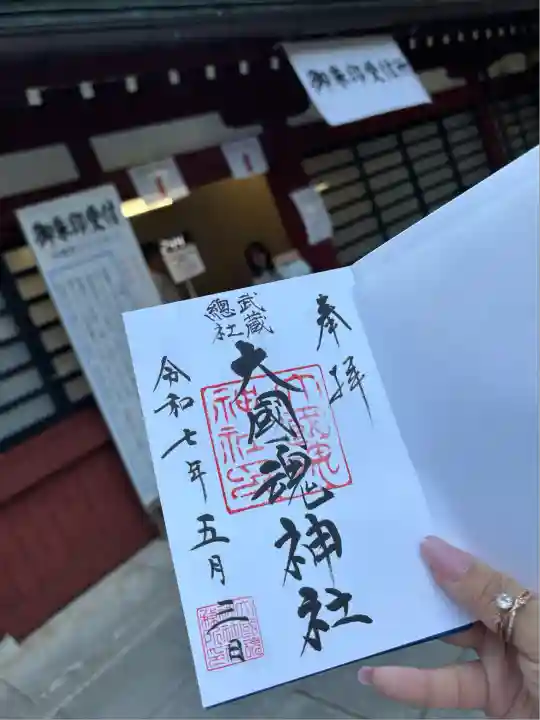 奉拝
武蔵
總社
大國魂神社
令和七年五月三日
御朱印受付所
御朱印受付